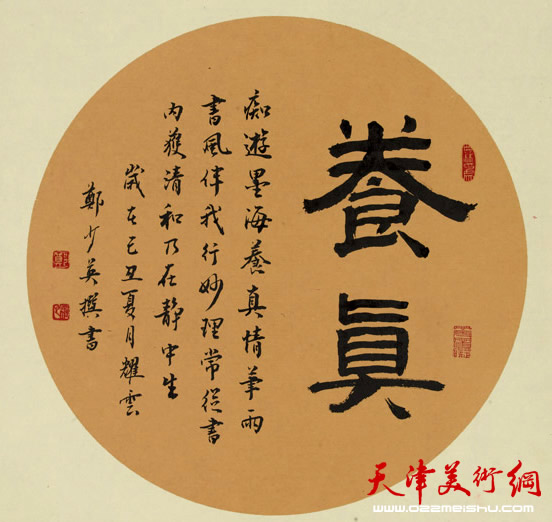 養真
痴遊墨海養真情筆雨
書風伴我行妙理常從書
内獲清和乃在静中生
歲在己丑夏月耀雲
鄭少英撰書
天津美術網
www.022meishu.com